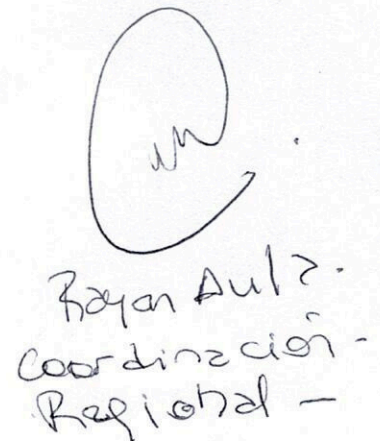 Rayan Aula.
Coordinación -
Regional -